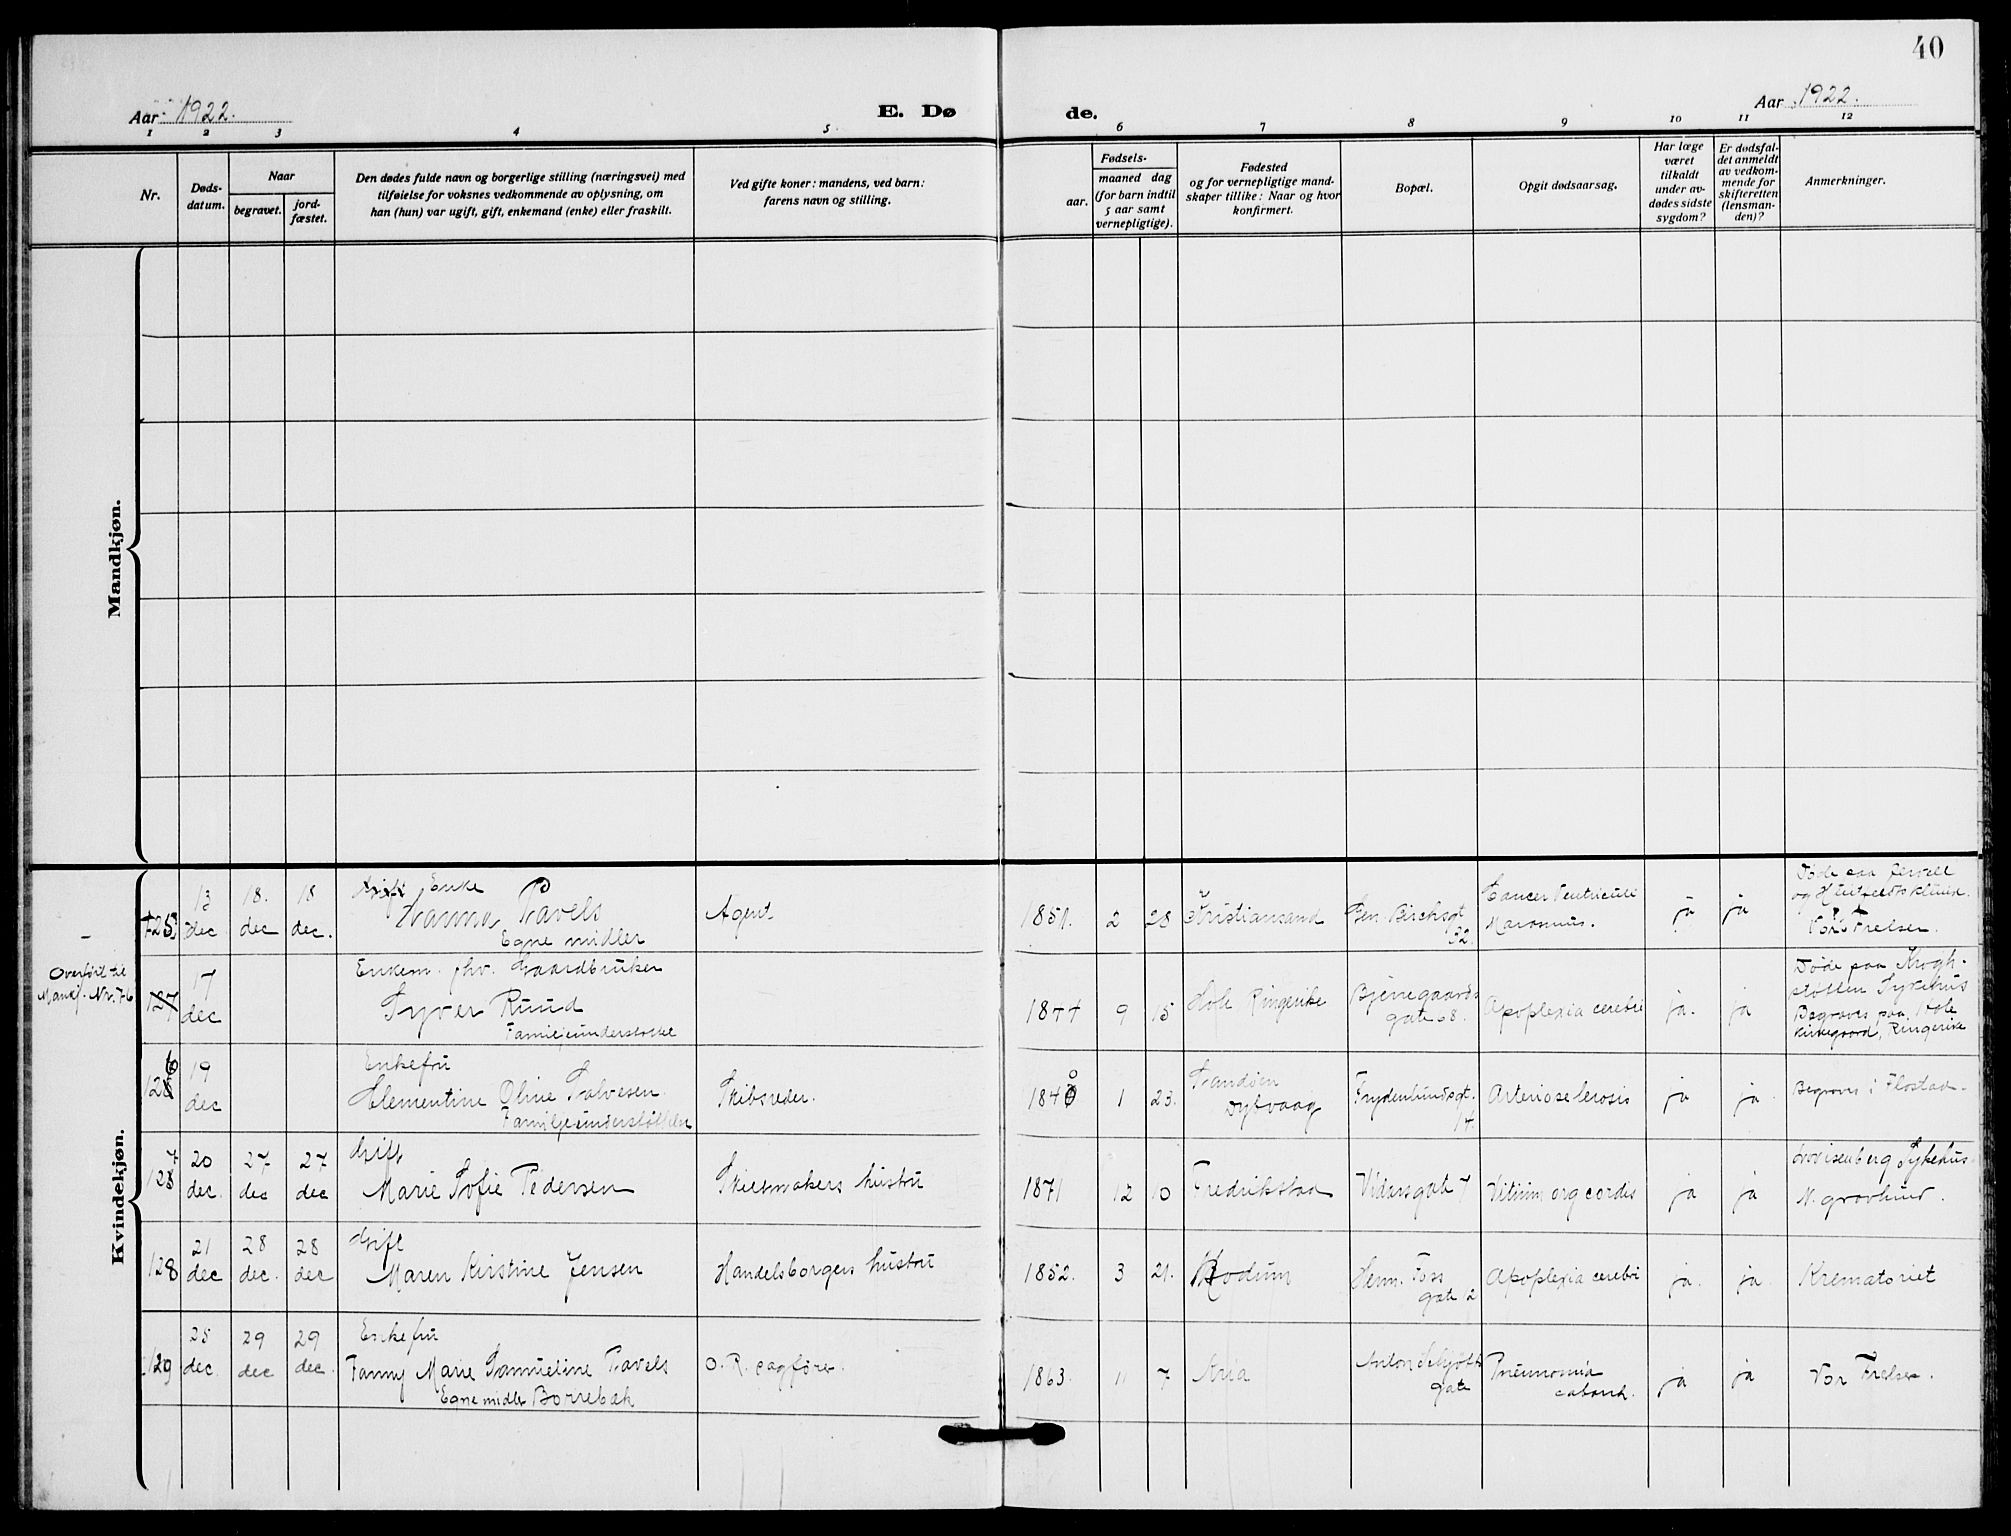 40
Aar 1922.
E. Dø
de.
Aar 1922.
1 2 3 4 5 6 7 8 9 10 11 12
Nr.
Døds-
datum.
Naar
begravet.
jord-
fæstet.
Den dødes fulde navn og borgerlige stilling (næringsvei) med
tilføielse for voksnes vedkommende av oplysning, om
han (hun) var ugift, gift, enkemand (enke) eller fraskilt.
Ved gifte koner: mandens, ved barn:
farens navn og stilling.
Fødsels-
aar.
maaned dag
(for barn indtil
5 aar samt
vernepligtige).
Fødested
og for vernepligtige mand-
skaper tillike: Naar og hvor
konfirmert.
Bopæl.
Opgit dødsaarsag.
Har læge
været
tilkaldt
under av-
dødes sidste
sygdom?
Er dødsfal-
det anmeldt
av vedkom-
mende for
skifteretten
(lensman-
den)?
Anmerkninger.
Mandkjøn.
Kvindekjøn.
125
13
dec
18.
dec
18
dec.
Enke
Hanna Pavels
Egne midler
Agent
1851. 2 28
Kristiansand
Gen. Birchsgt
32.
Cancer Ventriculi
Marasmus.
ja
ja
Døde paa
og
Vor Frelser.
Overført til
Mankj. Nr. 76
127
17
dec
Enkem. fhv. Gaardbruker
Syver Ruud
Familieunderstøttet
1844 9 15
Hole Ringerike
Bjerregaards
gate 68.
Apoplexia cerebri
ja.
ja
Døde paa Krogh-
støtten Sykehus
Begraves paa Hole
kirkegaard, Ringerike
126
19
dec
Enkefru
Clementine Oline Salvesen.
Skibsreder.
1840 1 23.
Sandøen
Dybvaag
Frydenlundsgt.
14
Arteriosclerosis
ja
ja
Begraves i Flostad.
127
20
dec.
27
dec
27
dec
Gift
Marie Sofie Pedersen
Skiltmakers hustru
1871 12 10
Fredrikstad
Vidarsgate 7
Vitium org cordis
ja
ja
Lovisenberg Sykehus
N. gravlund.
128
21
dec
28
dec.
28
dec
Gift
Maren Kirstine Jensen
Handelsborgers hustru
1852. 3 21.
Modum
Herm. Foss
gate 2
Apoplexia cerebri
ja.
ja
Krematoriet
129
25
dec
29
dec
29
dec.
Enkefru
Fanny Marie Samueline Pavels
Egne midler Borrebæk
O. R. sagfører.
1863. 11 7
Aria
Anton Schjøtts
gate
Pneumonia
ja
ja
Vor Frelser.